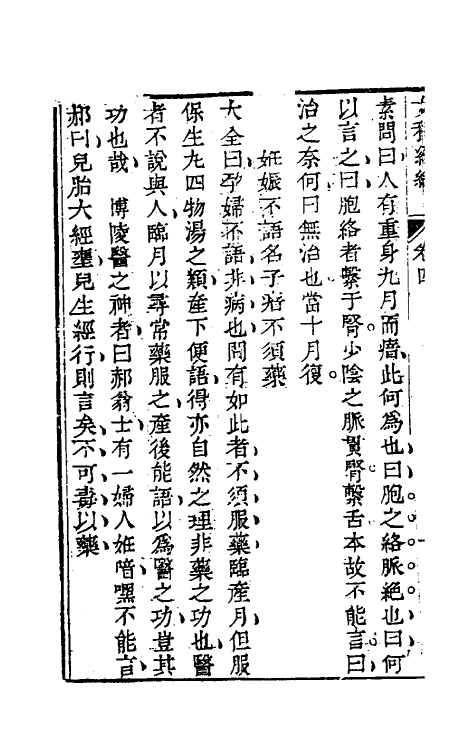 女科經綸 卷四
素問曰人有重身九月而瘖此何爲也曰胞之絡脈絕也曰何
以言之曰胞絡者繫于腎少陰之脈貫腎繫舌本故不能言曰
治之奈何曰無治也當十月復
妊娠不語名子瘖不須藥
大全曰孕婦不語非病也間有如此者不須服藥臨產月但服
保生丸四物湯之類產下便語得亦自然之理非藥之功也醫
者不說與人臨月以尋常藥服之產後能語以爲醫之功豈其
功也哉 博陵醫之神者曰郝翁士有一婦人妊喑嘿不能言
郝曰兒胎大經壅兒生經行則言矣不可毒以藥